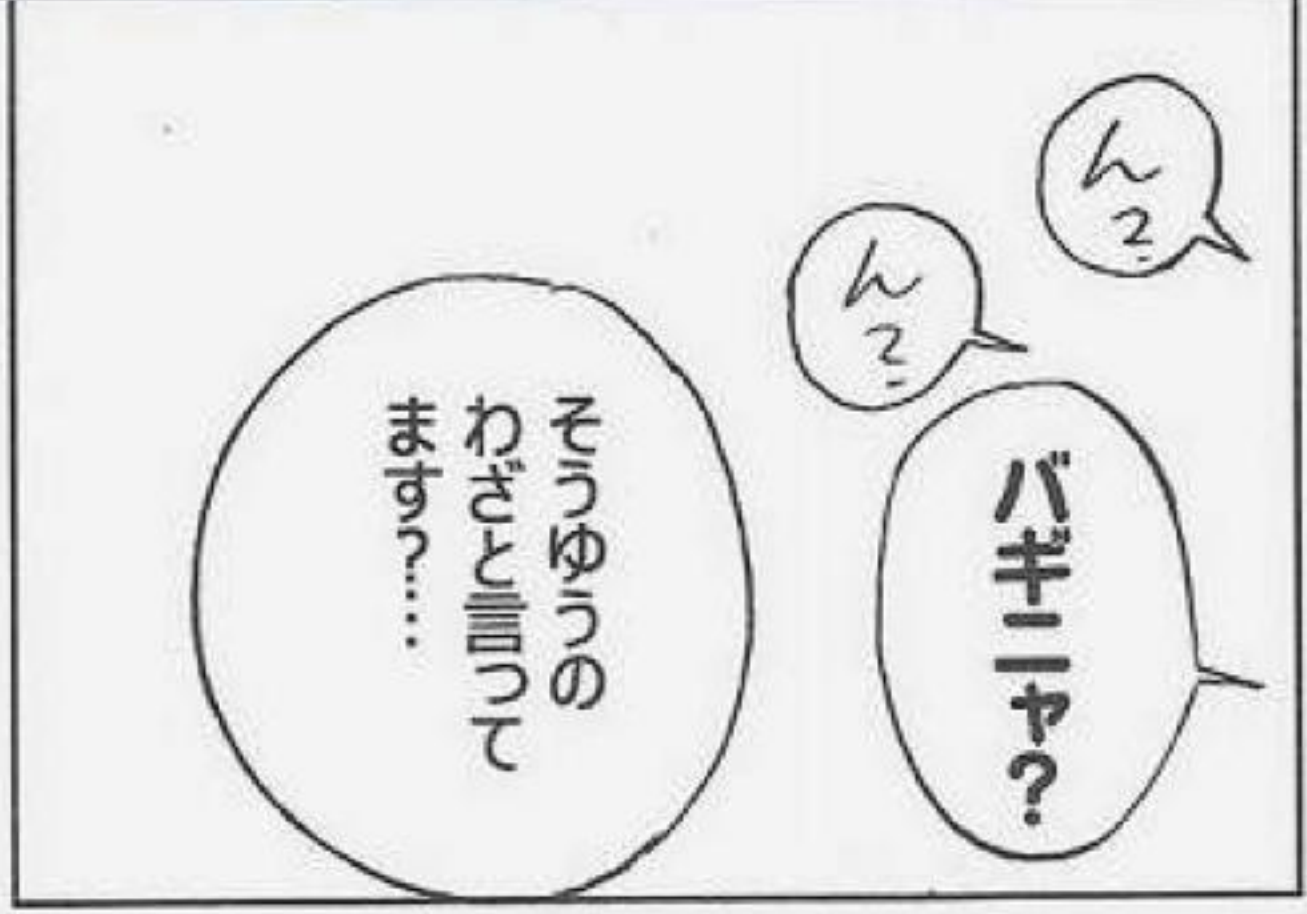 ん?
ん?
バギニャ?
そうゆうの
わざと言って
ます?….